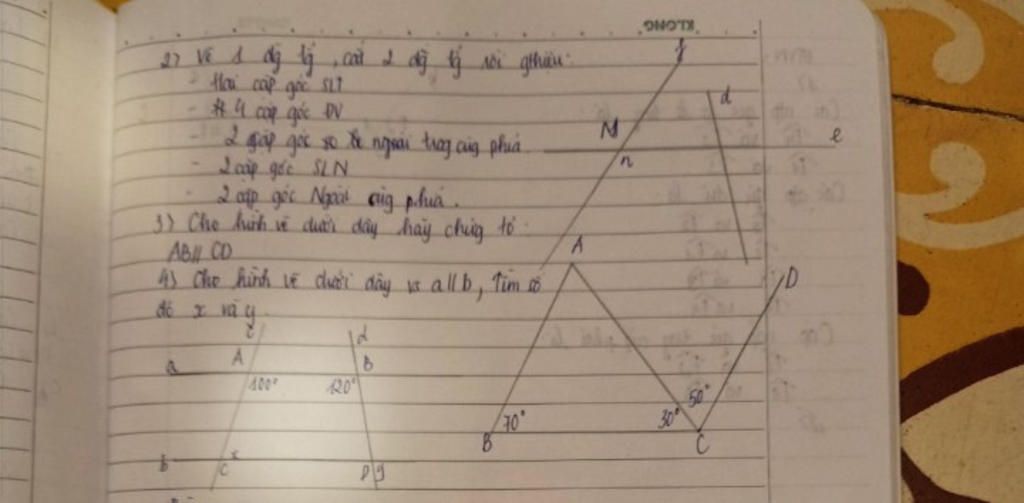 KLONG
2) Vẽ 1 đg tg, cắt 2 đg tg rồi ghiệu:
- Hai cặp góc SLT
- 4 cặp góc ĐV
- 2 cặp góc trog cùg phía.
- 2 cặp góc SLN
- 2 cặp góc Ngoài cùg phía.
3) Cho hình vẽ dưới đây hãy chứng tỏ
AB // CD
4) Cho hình vẽ dưới đây và a // b, Tìm số
đo x và y.
f
d
M
e
n
A
D
70°
50°
30°
B
C
c
d
a
A
B
100°
120°
b
C
x
D
y